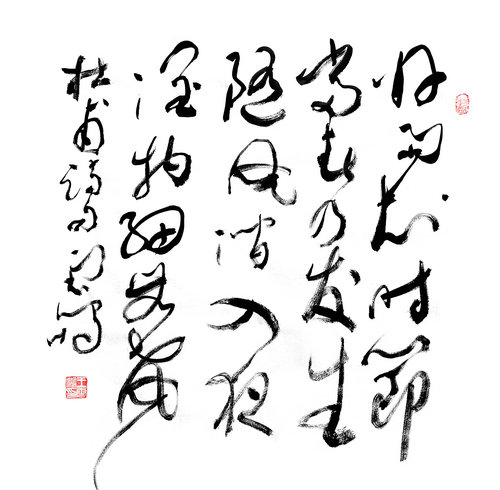 好雨知时節
当春乃发生
随风潜入夜
润物细无声
杜甫诗